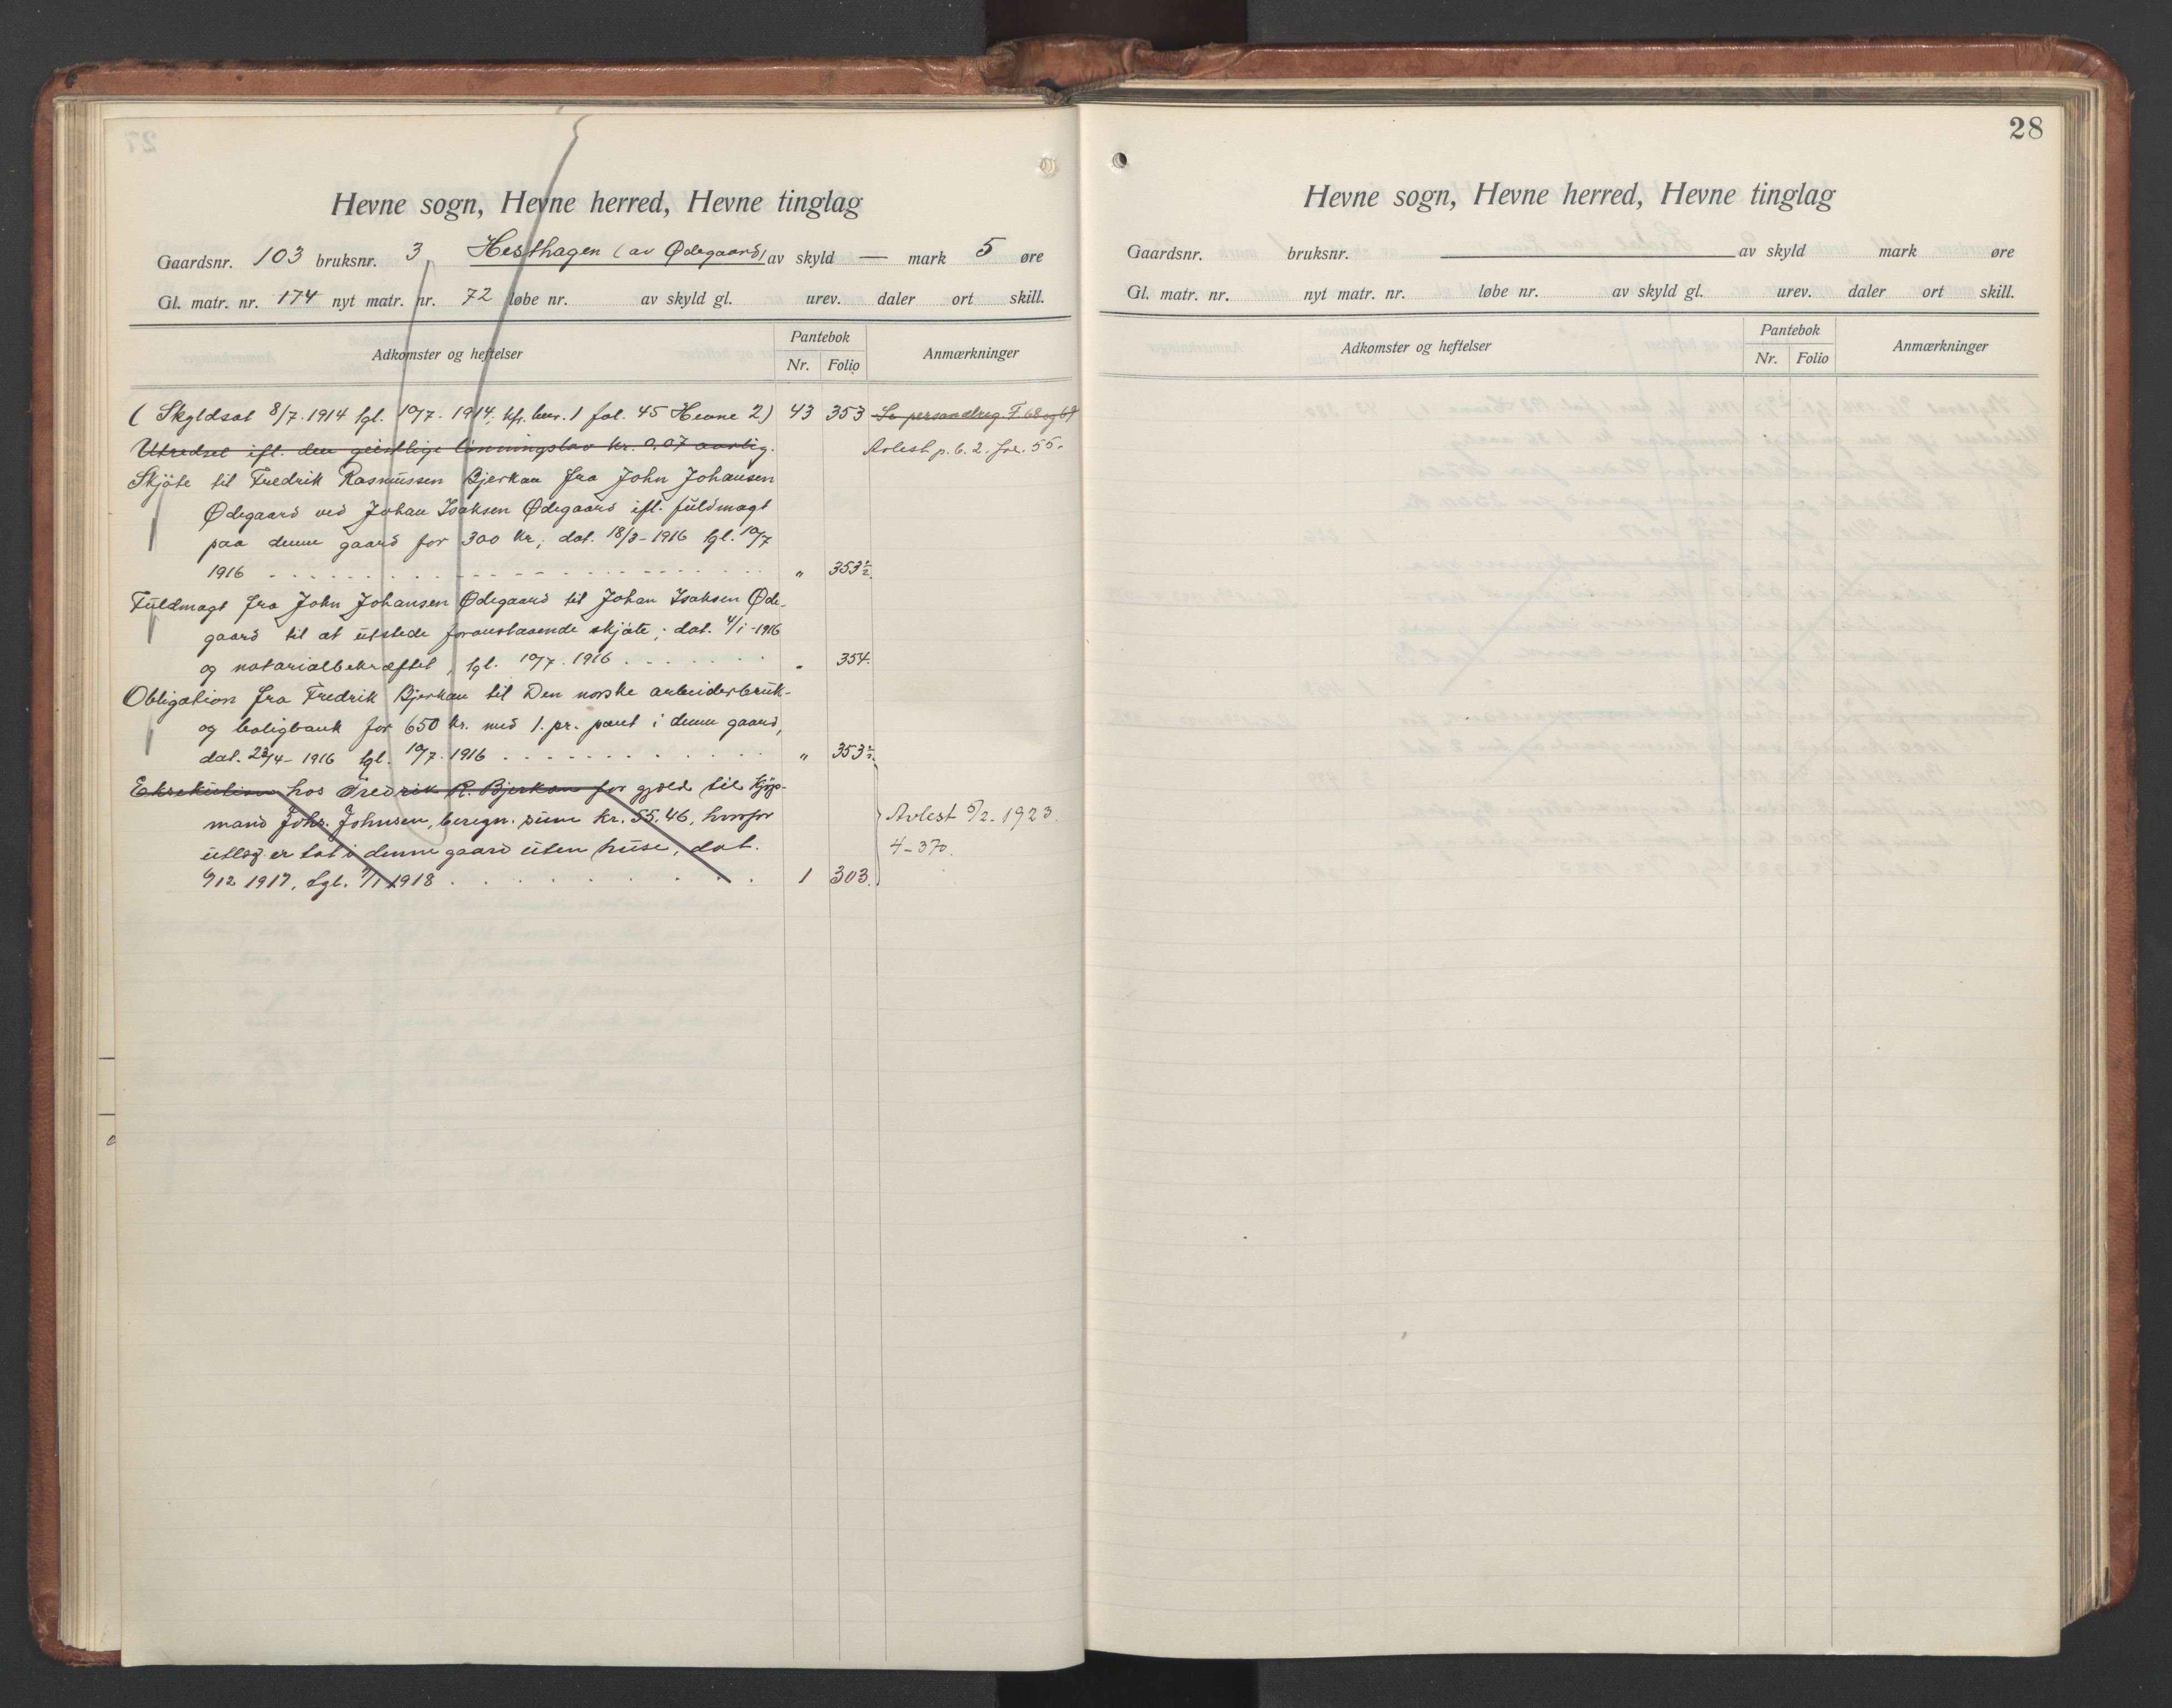 Hevne sogn, Hevne herred, Hevne tinglag
Gaardsnr. 103 bruksnr. 3, Hesthagen (av Ødegaard) av skyld — mark 5 øre
Gl. matr. nr. 174 nyt matr. nr. 72 løbe nr. av skyld gl. urev. daler ort skill.
Adkomster og heftelser Pantebok Nr. Folio Anmærkninger
( Skyldsat 8/7. 1914 tgl. 10/7. 1914, kfr. 1 fol. 45 Hevne 2) 43 353 Se personalreg. F. 68 og 69
Utredsel ifl. den geistlige lønningslov kr. 0,07 aarlig. Avlest p. b. 2. fol. 55.
Skjøte til Fredrik Rasmussen Bjerkan fra John Johansen
Ødegaard ved Johan Isaksen Ødegaard ifl. fuldmagt
paa denne gaard for 300 kr., dat. 18/3 - 1916 tgl. 10/7
1916 . . . . . . . . . . „ 353½
Fuldmagt fra John Johansen Ødegaard til Johan Isaksen Øde-
gaard til at utstede foranstaaende skjøte; dat. 4/1 - 1916
og notarialbekræftet, tgl. 10/7. 1916 . . . . . . „ 354.
Obligation fra Fredrik Bjerkan til Den norske arbeiderbruk-
og boligbank for 650 kr. med 1. pr. pant i denne gaard,
dat. 22/4 - 1916 tgl. 10/7. 1916 . . . . . . . . „ 353½.
Eksekution hos Fredrik R. Bjerkan for gjæld til Kjøp-
mand Johs. Johnsen, beregn. sum kr. 55.46, hvorfor
utlæg er tat i denne gaard uten huse, dat.
6/12 1917, tgl. 7/1 1918 . . . . . . . 1 303.
Avlest 5/2 - 1923.
4 - 370.
28
Hevne sogn, Hevne herred, Hevne tinglag
Gaardsnr. bruksnr. av skyld mark øre
Gl. matr. nr. nyt matr. nr. løbe nr. av skyld gl. urev. daler ort skill.
Adkomster og heftelser Pantebok Nr. Folio Anmærkninger